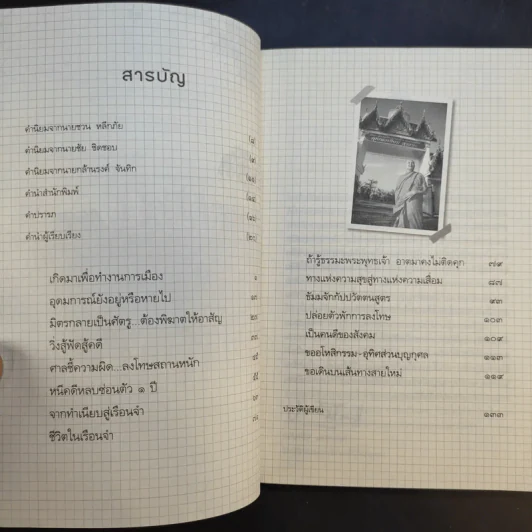 สารบัญ
คำนิยมจากนายชวน หลีกภัย
คำนิยมจากนายชัย ชิดชอบ
คำนิยมจากนายกล้านรงค์ จันทิก
คำนำสำนักพิมพ์
คำปรารภ
คำนำผู้เรียบเรียง
เกิดมาเพื่อทำงานการเมือง
อุดมการณ์ยังอยู่หรือหายไป
มิตรกลายเป็นศัตรู...ต้องพิฆาตให้อาสัญ
วิ่งสู้ฟัดสู้คดี
ศาลชี้ความผิด...ลงโทษสถานหนัก
หนีคดีหลบซ่อนตัว ๑ ปี
จากทำเนียบสู่เรือนจำ
ชีวิตในเรือนจำ
ถ้ารู้ธรรมะพระพุทธเจ้า อาตมาคงไม่ติดคุก ๗๙
ทางแห่งความสุขสู่ทางแห่งความเสื่อม ๘๗
ธัมมจักกัปปวัตตนสูตร ๙๓
ปล่อยตัวพักการลงโทษ ๑๐๓
เป็นคนดีของสังคม ๑๐๙
ขออโหสิกรรม-อุทิศส่วนบุญกุศล ๑๑๓
ขอเดินบนเส้นทางสายใหม่ ๑๑๙
ประวัติผู้เขียน ๑๓๓